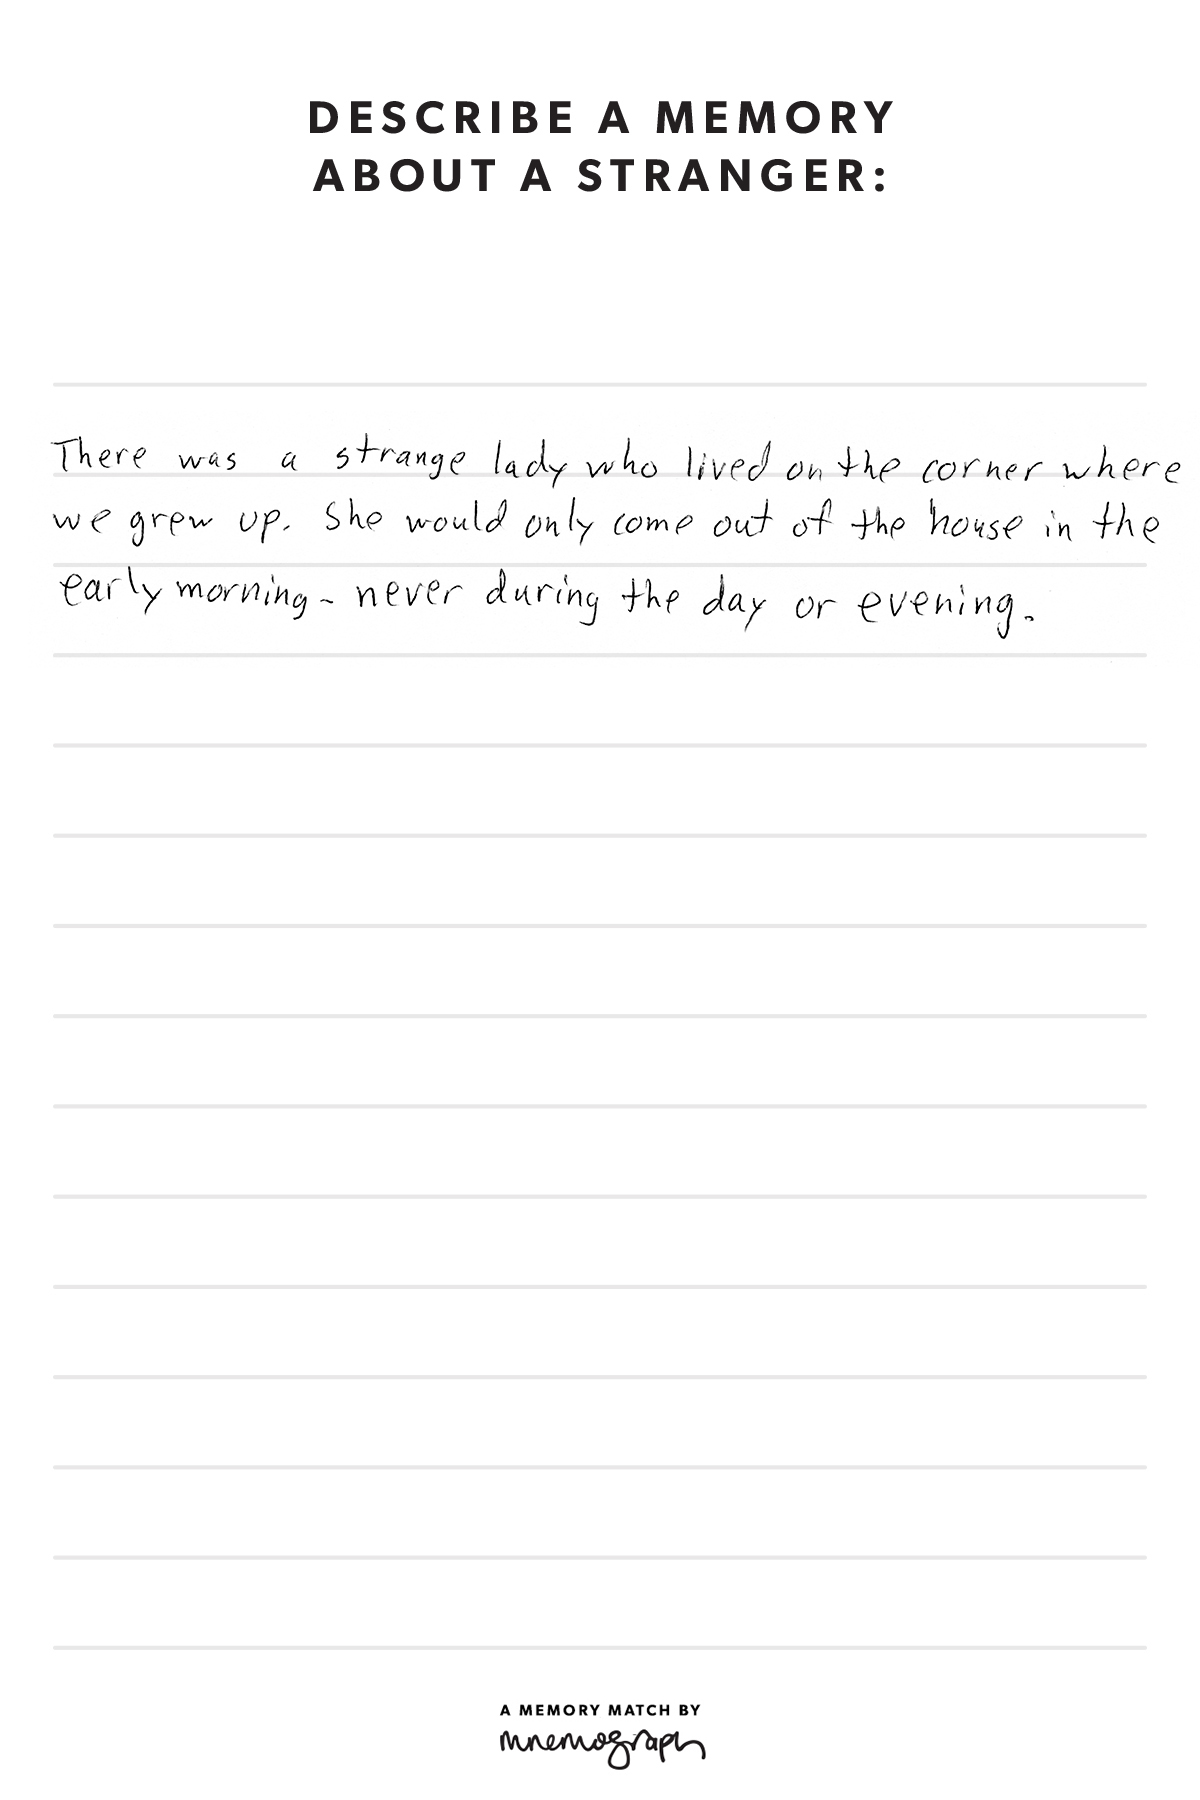 DESCRIBE A MEMORY
ABOUT A STRANGER:
There was a strange lady who lived on the corner where
we grew up. She would only come out of the house in the
early morning - never during the day or evening.
A MEMORY MATCH BY
mnemograph